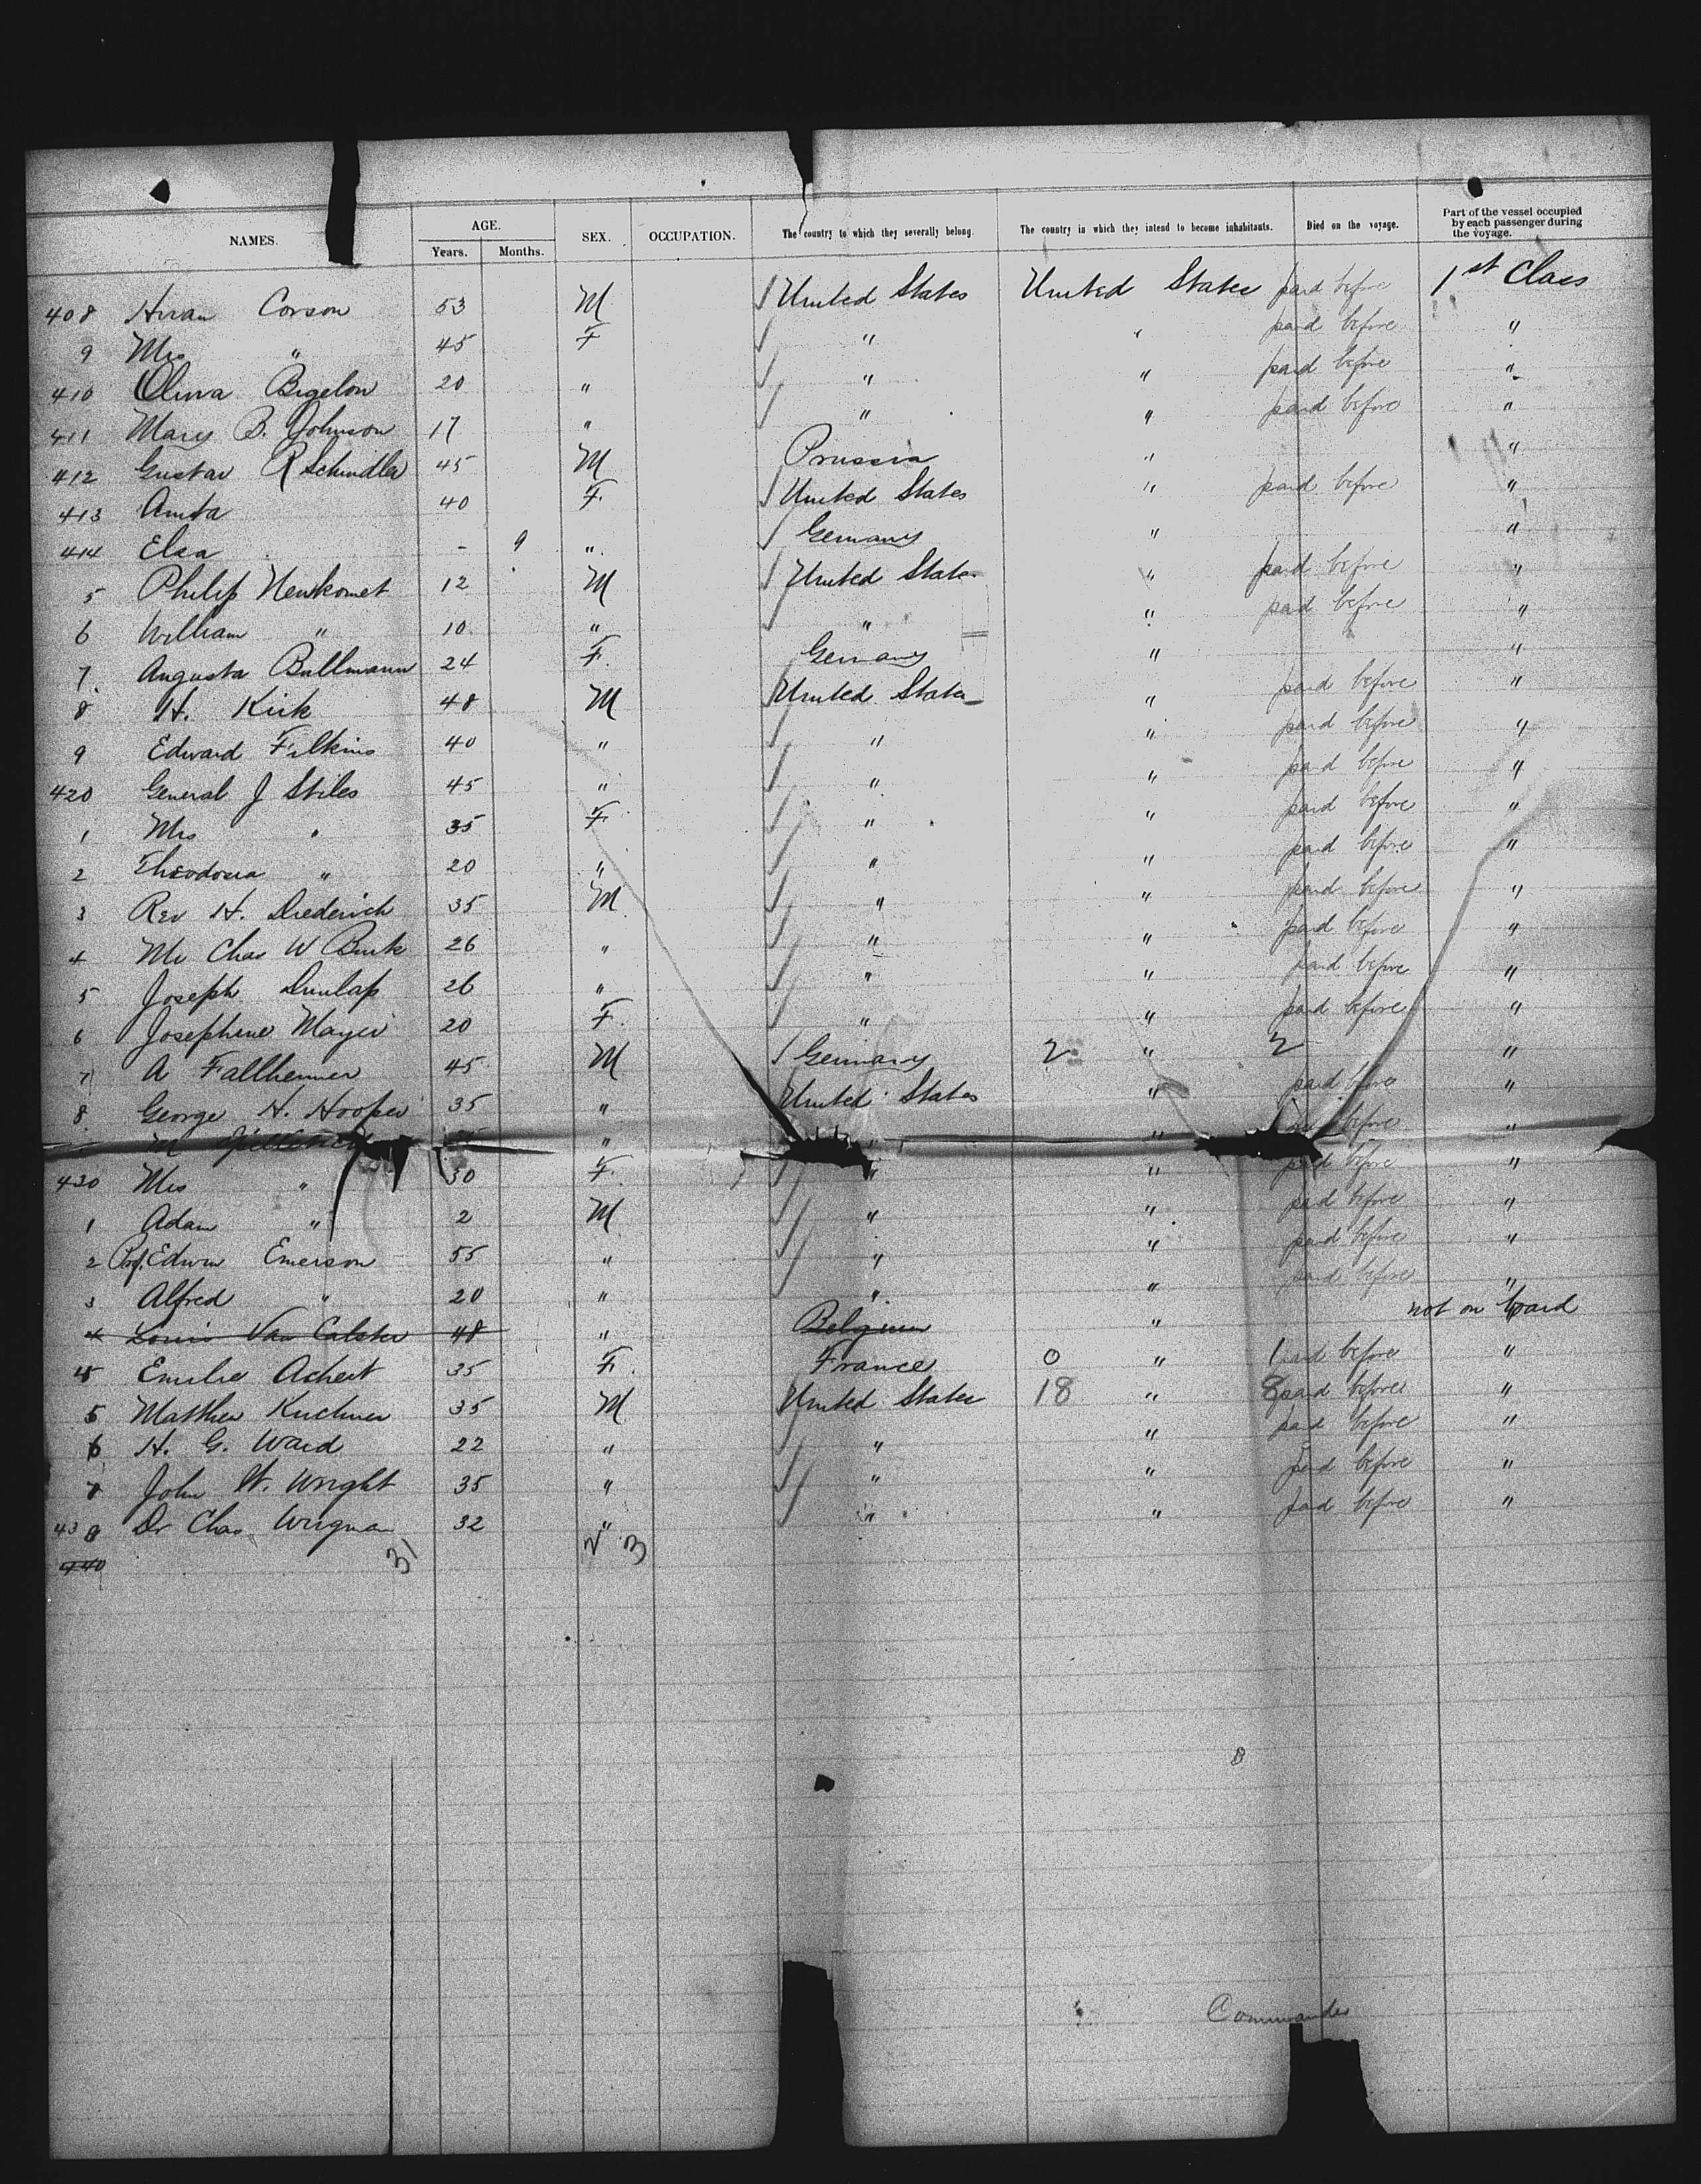 NAMES. AGE. Years. Months. SEX. OCCUPATION. The country to which they severally belong. The country in which they intend to become inhabitants. Died on the voyage. Part of the vessel occupied by each passenger during the voyage.
408 Hiram Corson 53 M United States United States paid before 1st Class
9 Mrs " 45 F " " paid before "
410 Olivia Bigelow 20 " " " paid before "
411 Mary B. Johnson 17 " " " paid before "
412 Gustav R Schindler 45 M Prussia " "
413 Anita 40 F. United States " paid before "
414 Elsa - 9 " Germany " "
5 Philip Neukomet 12 M United States " paid before "
6 William " 10 " " " paid before "
7. Augusta Bullmann 24 F. Germany " "
8 H. Kirk 48 M United States " paid before "
9 Edward Filkins 40 " " " paid before "
420 General J Stiles 45 " " " paid before "
1 Mrs " 35 F. " " paid before "
2 Theodosia " 20 " " " paid before "
3 Rev H. Diederich 35 M " " paid before "
4 Mr Chas W Burk 26 " " " paid before "
5 Joseph Dunlap 26 " " " paid before "
6 Josephine Mayer 20 F. " " paid before "
7 A Fallhenner 45 M Germany 2 " 2 "
8. George H. Hooper 35 " United States " paid before "
M " " " before "
430 Mrs " 30 F. " " paid before "
1 Adam " 2 M " " paid before "
2 Prof. Edwin Emerson 55 " " " paid before "
3 Alfred " 20 " " " paid before "
4 Louis Van Calster 48 " Belgium " not on board
45 Emilie Achert 35 F. France 0 " 1 paid before "
5 Matthew Kuchner 35 M United States 18 " 8 paid before "
6 H. G. Ward 22 " " " paid before "
7 John W. Wright 35 " " " paid before "
438 Dr Chas Wirgman 32 " " " paid before "
440 31 23
B
Commander